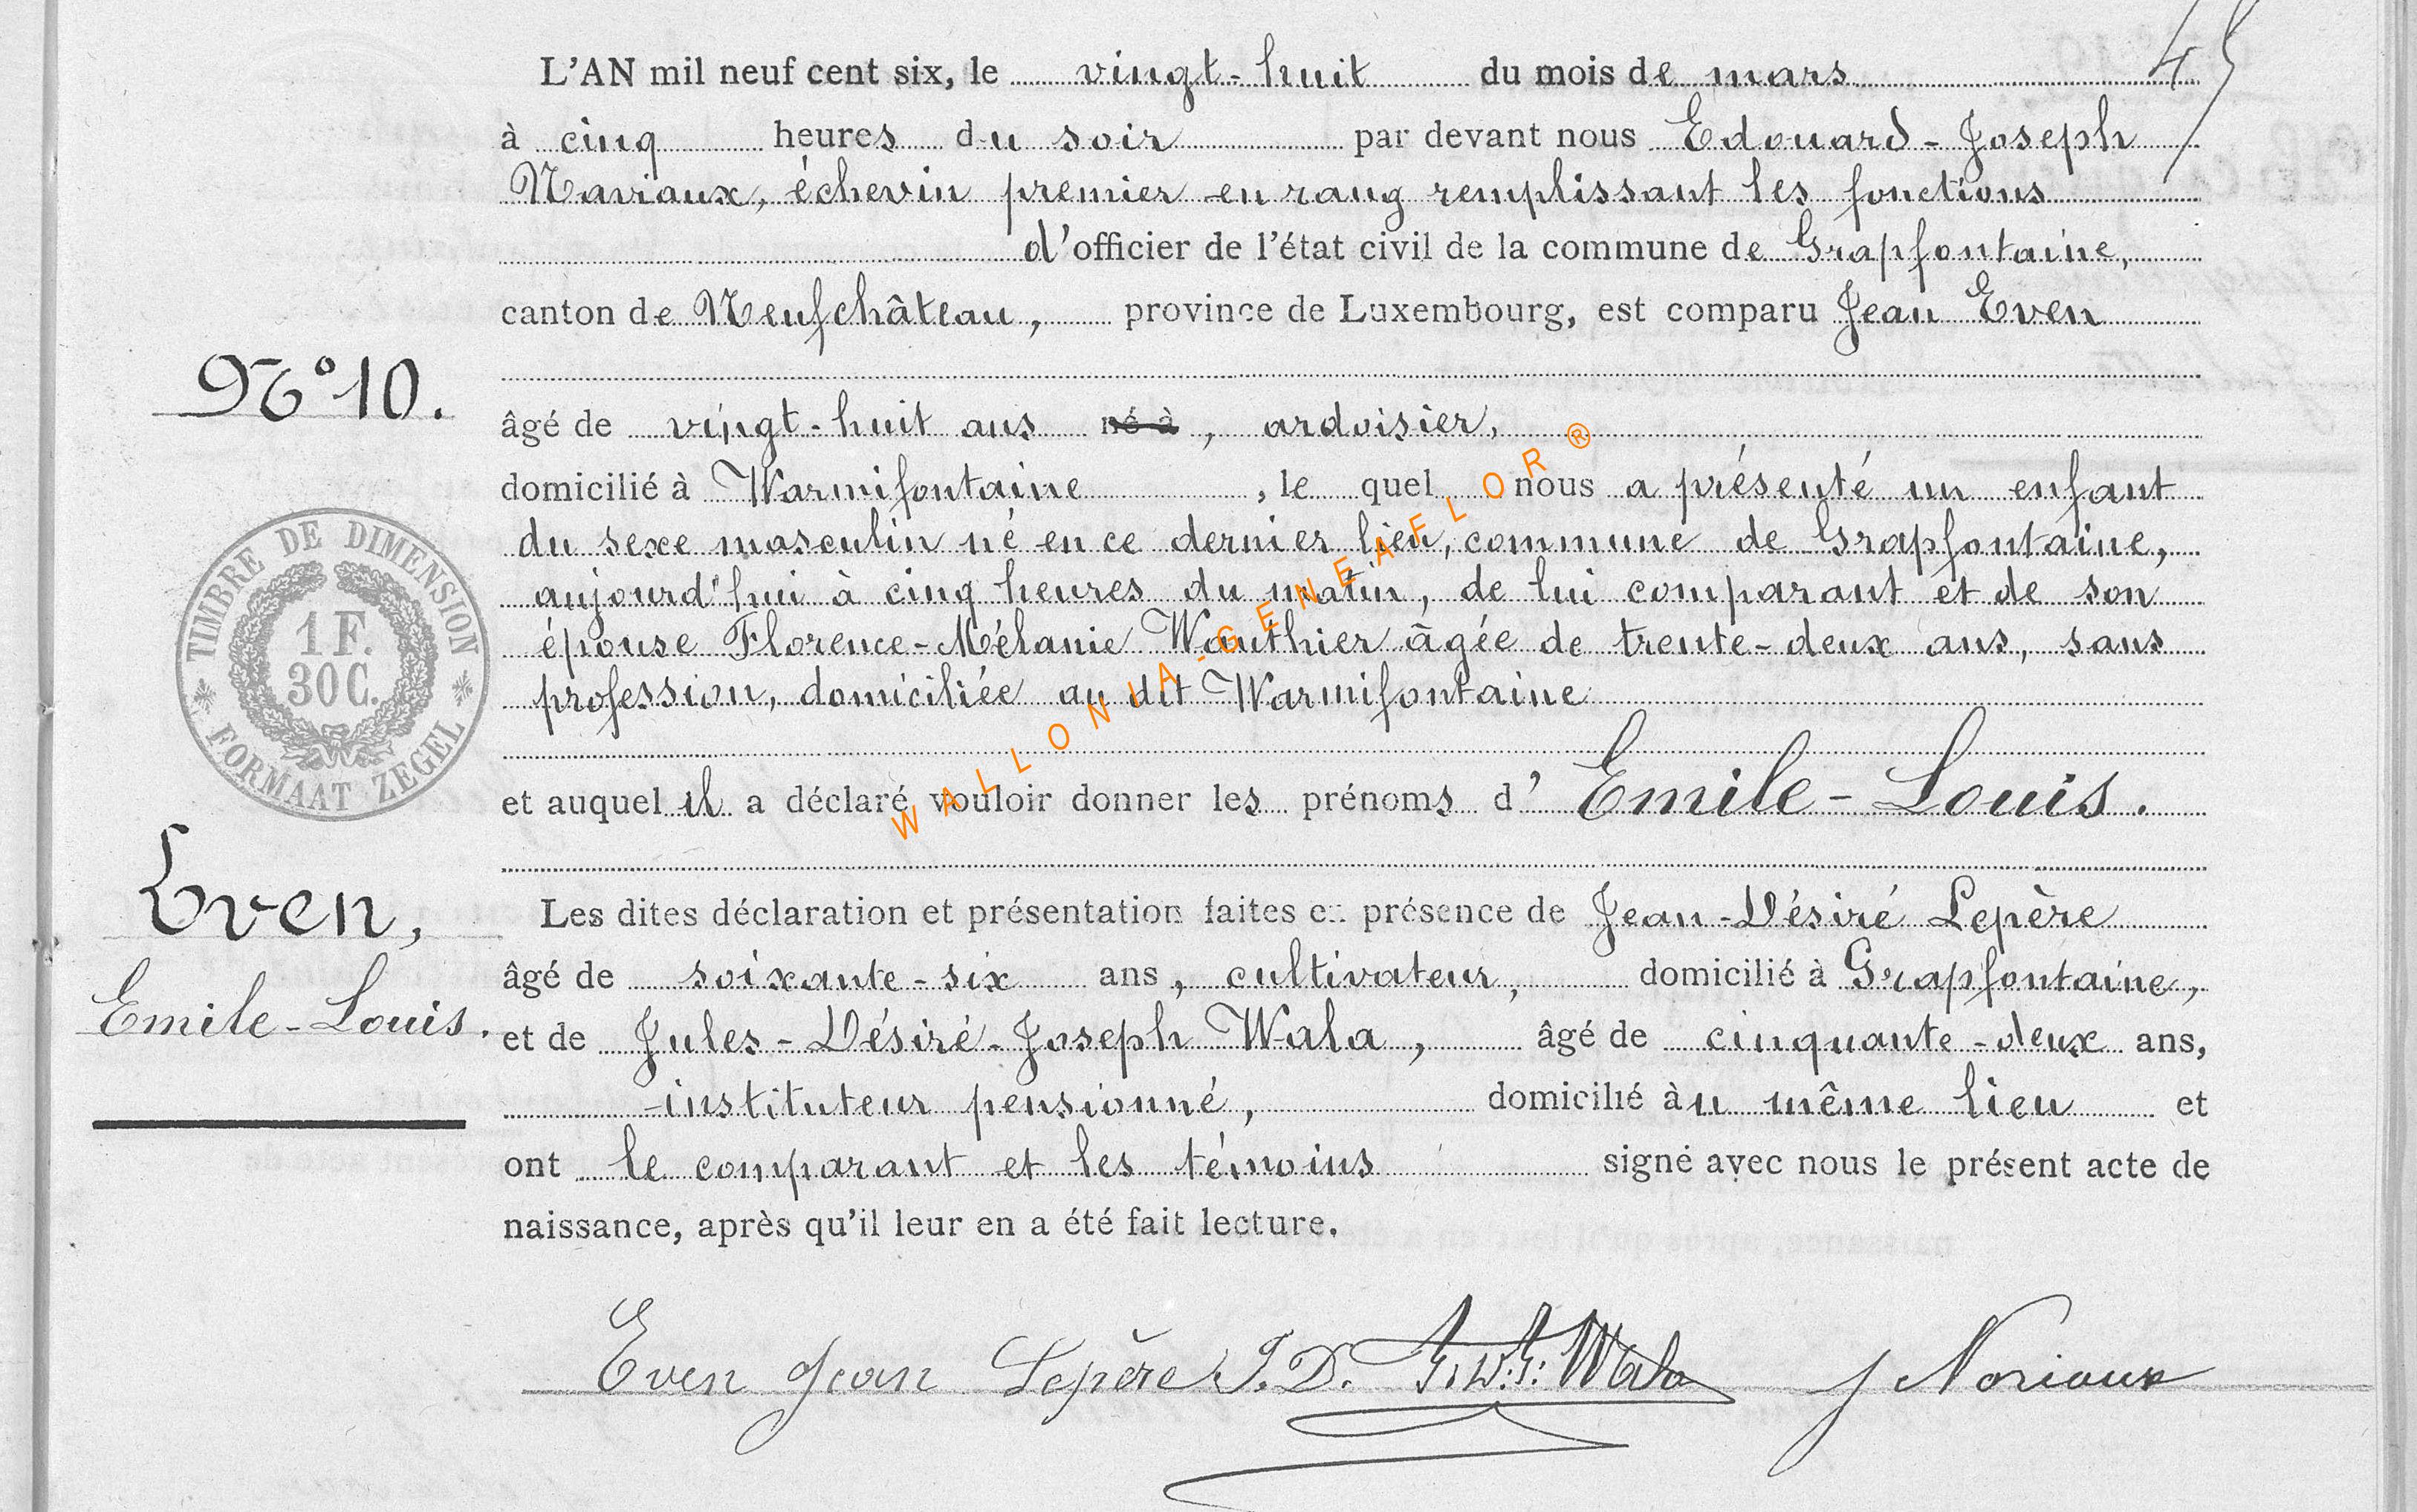 45
L'AN mil neuf cent six, le vingt-huit du mois de mars
à cinq heures du soir par devant nous Edouard-Joseph
Naviaux, échevin premier en rang remplissant les fonctions
d'officier de l'état civil de la commune de Grapfontaine,
canton de Neufchâteau, province de Luxembourg, est comparu Jean Even
N° 10.
âgé de vingt-huit ans né à, ardoisier,
domicilié à Warmifontaine, le quel nous a présenté un enfant
du sexe masculin né en ce dernier lieu, commune de Grapfontaine,
aujourd'hui à cinq heures du matin, de lui comparant et de son
épouse Florence-Mélanie Wauthier âgée de trente-deux ans, sans
profession, domiciliée au dit Warmifontaine
TIMBRE DE DIMENSION
1 F.
30 C.
FORMAAT ZEGEL
et auquel il a déclaré vouloir donner les prénoms d'Emile-Louis.
Even,
Emile-Louis.
Les dites déclaration et présentation faites en présence de Jean-Désiré Lepère
âgé de soixante-six ans, cultivateur, domicilié à Grapfontaine,
et de Jules-Désiré-Joseph Wala, âgé de cinquante-deux ans,
instituteur pensionné, domicilié àu même lieu et
ont le comparant et les témoins signé avec nous le présent acte de
naissance, après qu'il leur en a été fait lecture.
Even Jean Lepère J.D. J.D.J. Wala J Noriaux
WALLONIA-GENEAFLOR®